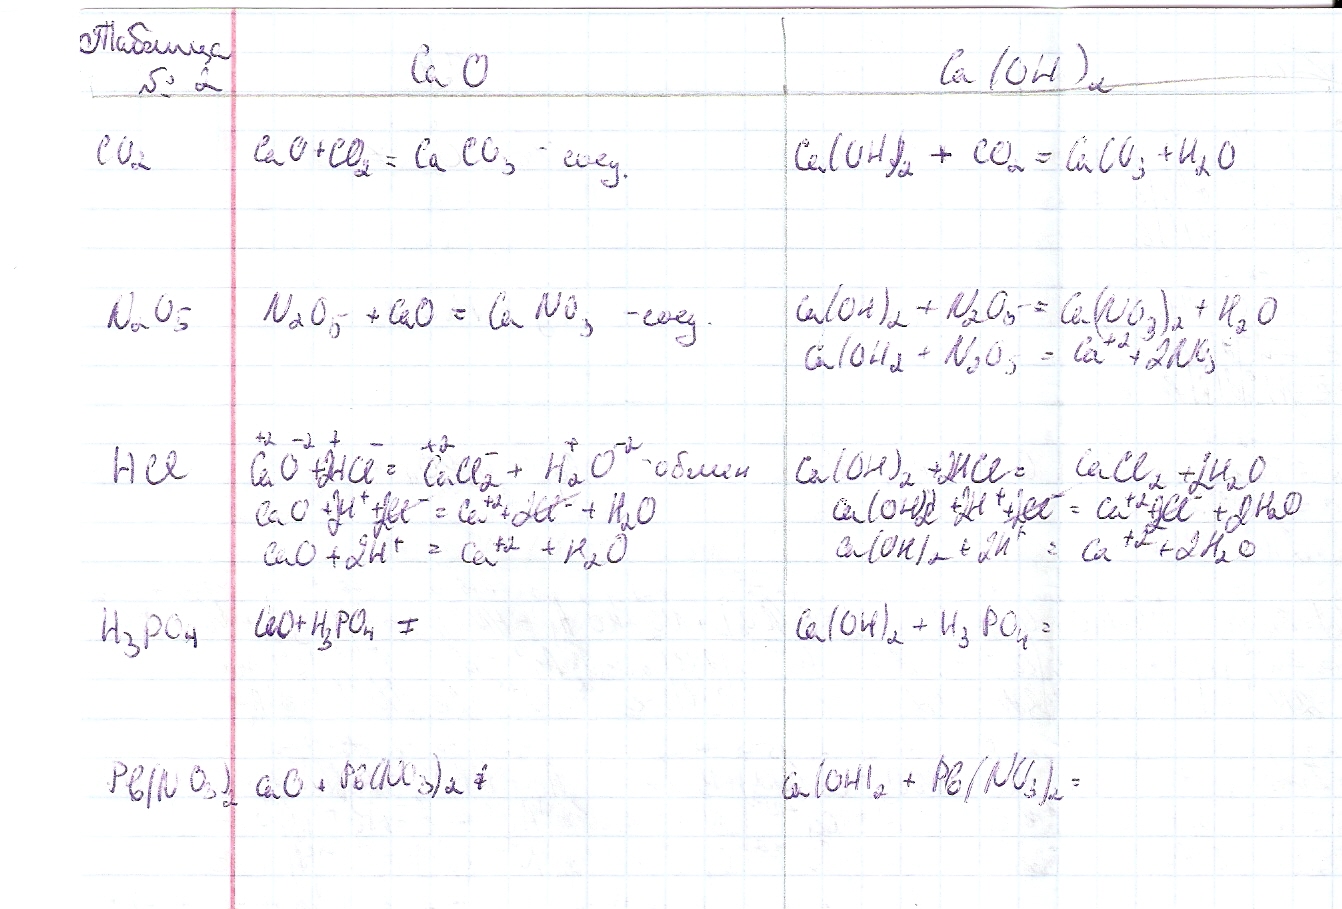 Таблица
№ 2
CaO
Ca(OH)2
CO2
CaO+CO2 = CaCO3 - соед.
Ca(OH)2 + CO2 = CaCO3 + H2O
N2O5
N2O5 + CaO = CaNO3 - соед.
Ca(OH)2 + N2O5 = Ca(NO3)2 + H2O
Ca(OH2 + N2O5 = Ca+2 + 2NO3-
HCl
+2 -2 + - +2 - + -2
CaO + 2HCl = CaCl2 + H2O - обмен
CaO + 2H+ + 2Cl- = Ca+2 + 2Cl- + H2O
CaO + 2H+ = Ca+2 + H2O
Ca(OH)2 + 2HCl = CaCl2 + 2H2O
Ca(OH)2 + 2H+ + 2Cl- = Ca+2 + 2Cl- + 2H2O
Ca(OH)2 + 2H+ = Ca+2 + 2H2O
H3PO4
CaO + H3PO4 ≠
Ca(OH)2 + H3PO4 =
Pb(NO3)2
CaO + Pb(NO3)2 ≠
Ca(OH)2 + Pb(NO3)2 =